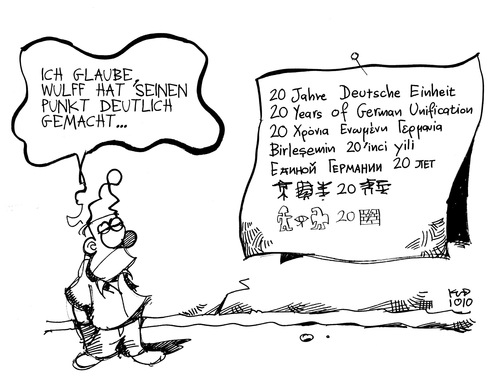 ICH GLAUBE,
WULFF HAT SEINEN
PUNKT DEUTLICH
GEMACHT...
20 Jahre Deutsche Einheit
20 Years of German Unification
20 Χρόνια Ενωμένη Γερμανία
Birleşemin 20'inci yili
Единой Германии 20 лет
20
20
KUB
1010